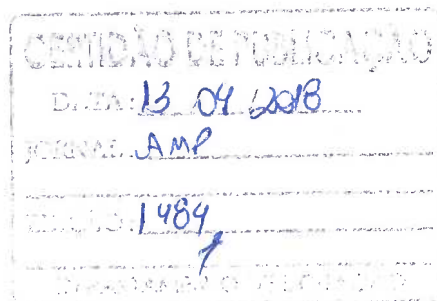 CERTIDÃO DE PUBLICAÇÃO
DATA: 13 04 2018
JORNAL: AMP
EDIÇÃO: 1484